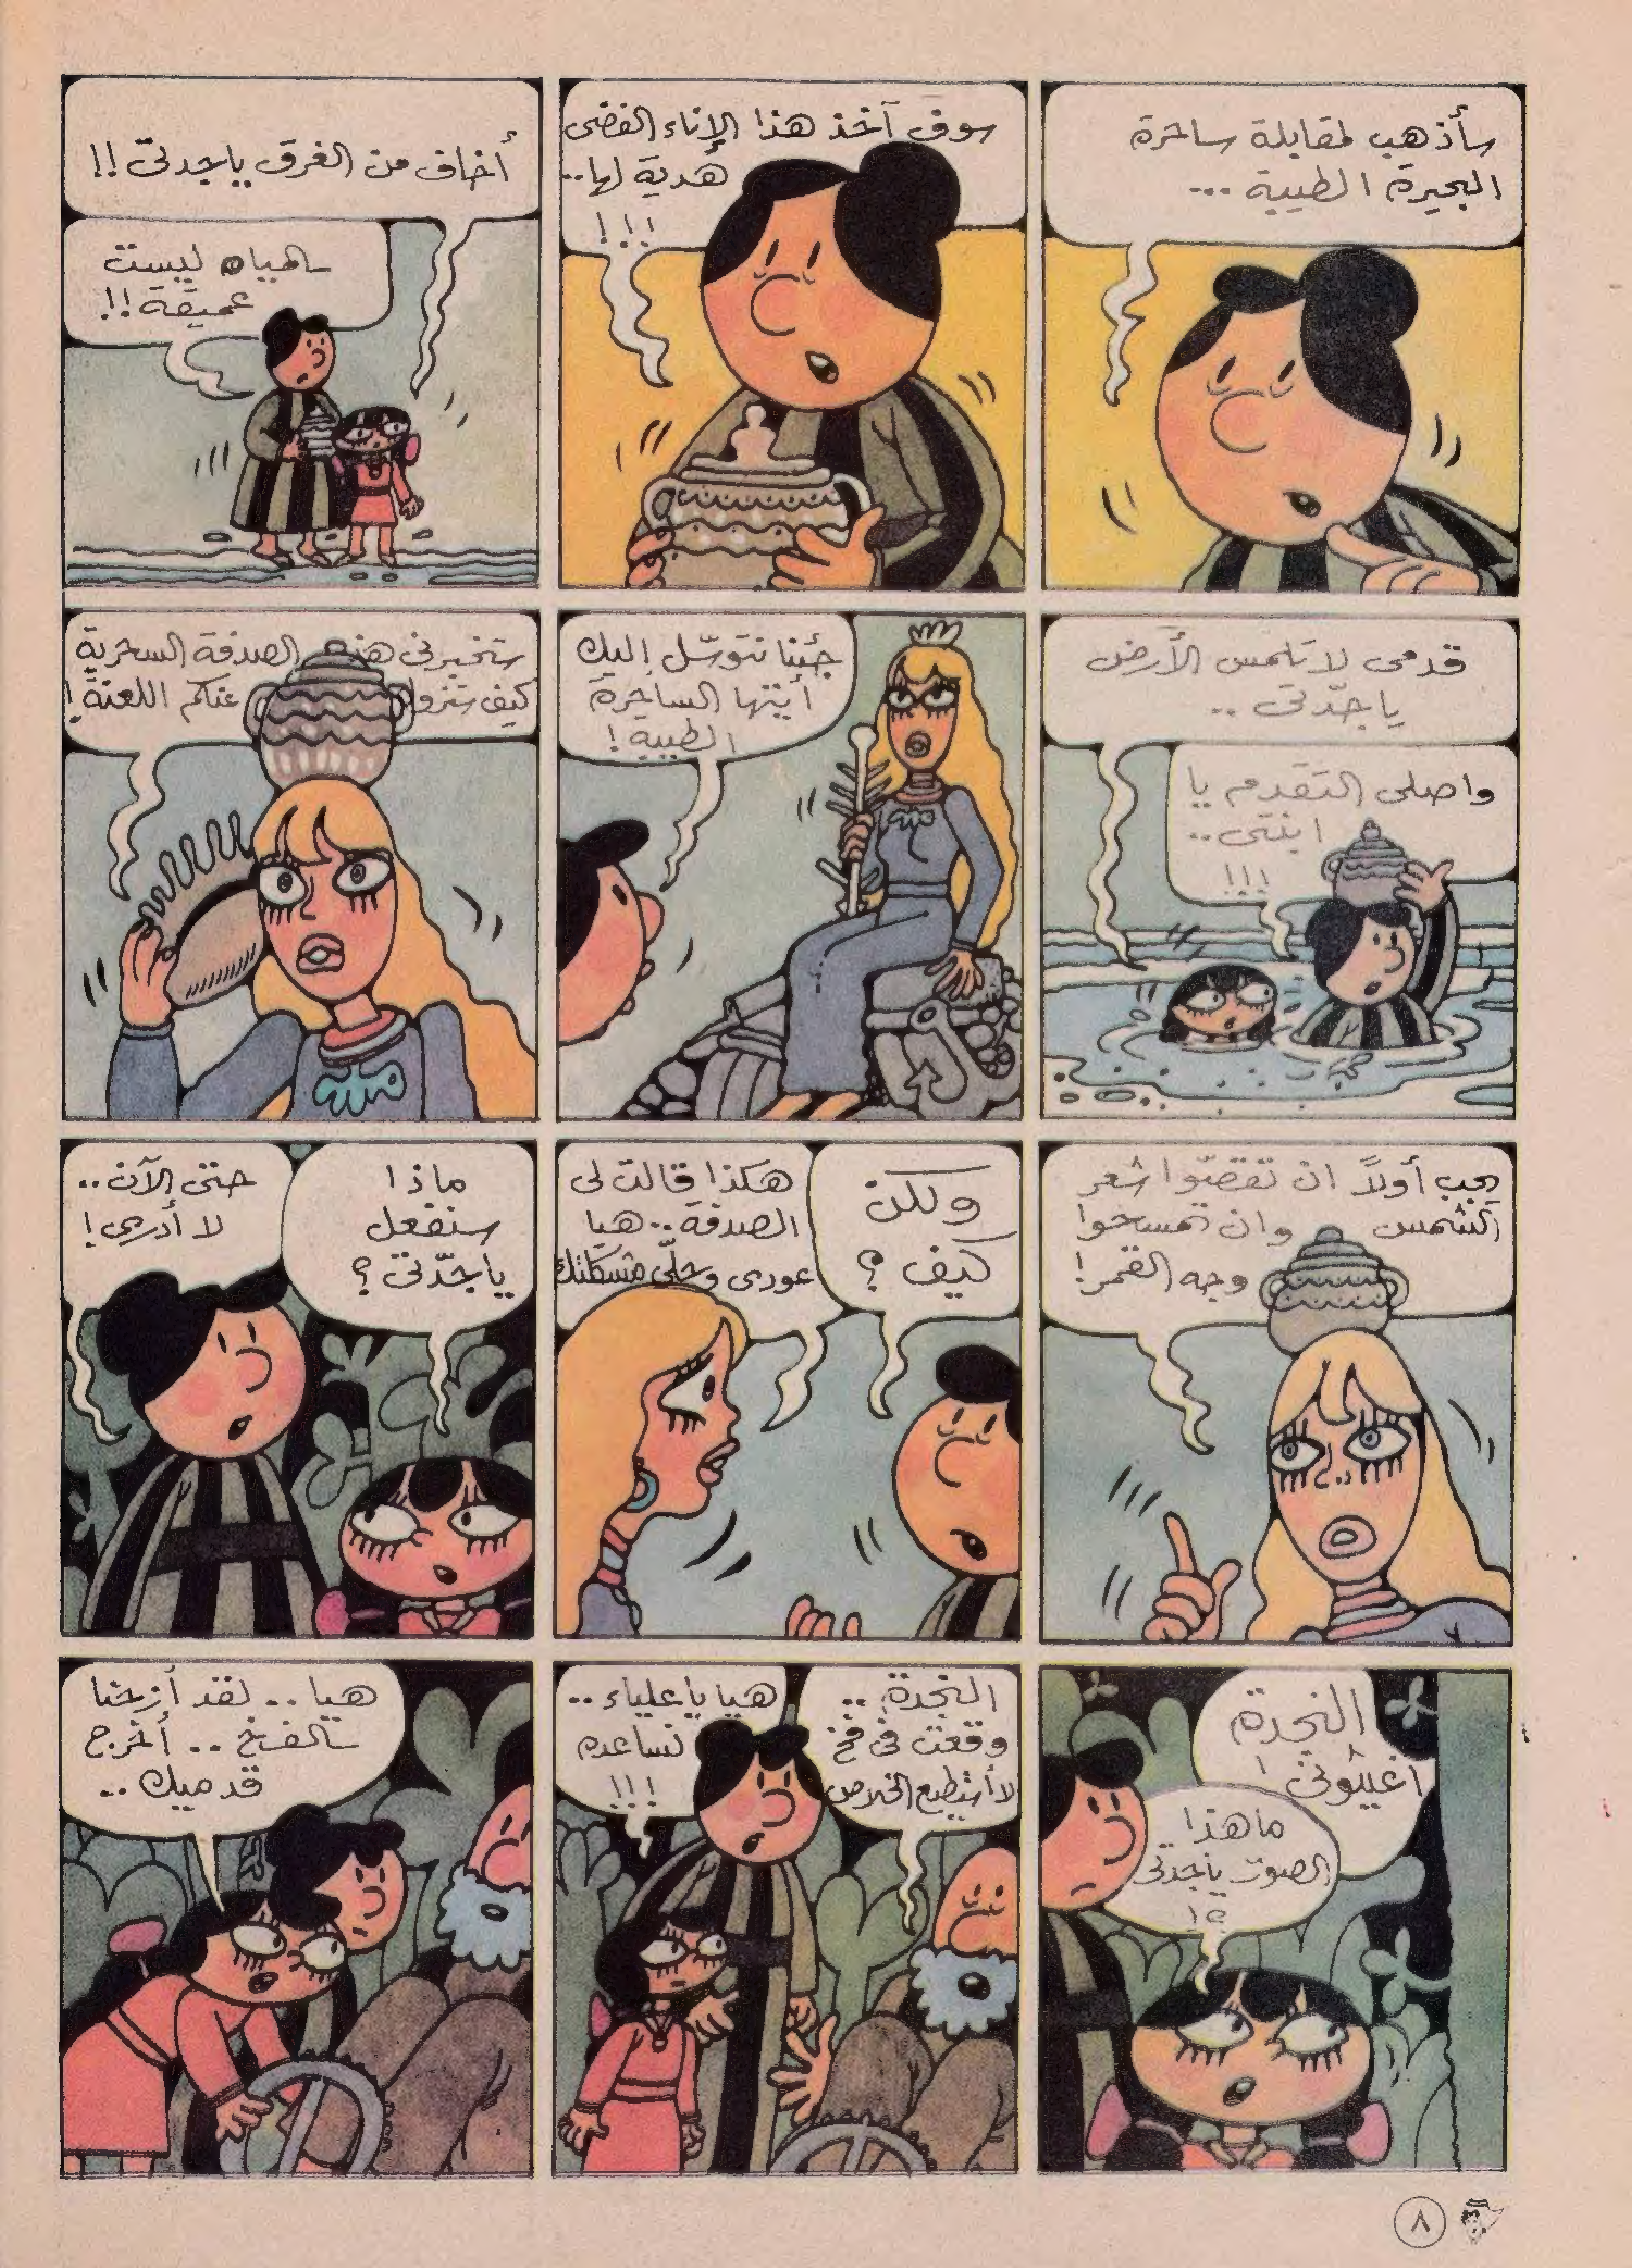 سأذهب لمقابلة ساحرة
البحيرة الطيبة ...
سوف آخذ هذا الإناء الفضى
هدية لها..
!!!
أخاف من الغرق ياجدتى !!
المياه ليست
عميقة !!
قدمى لا تلمس الأرض
يا جدّتى ..
واصلى التقدم يا
ابنتى ..
!!!
جئنا نتوسّل إليكِ
أيتها الساحرة
الطيبة !
ستخبرنى هذه الصدفة السحرية
كيف ستزول عنكم اللعنة !
يجب أولاً ان تقصّوا شعر
الشمس وان تمسحوا
وجه القمر !
ولكن
كيف ؟
هكذا قالت لى
الصدفة .. هيا
عودى وحلّى مشكلتك
ماذا
سنفعل
ياجدّتى ؟
حتى الآن ..
لا أدرى !
النجدة
أغيثونى !
ماهذا
الصوت ياجدتى
؟!
النجدة ..
وقعت فى فخ
لا أستطيع الخلاص
هيا ياعلياء ..
نساعده
!!!
هيا .. لقد أزحنا
الفخ .. أخرج
قدميك ..
٨